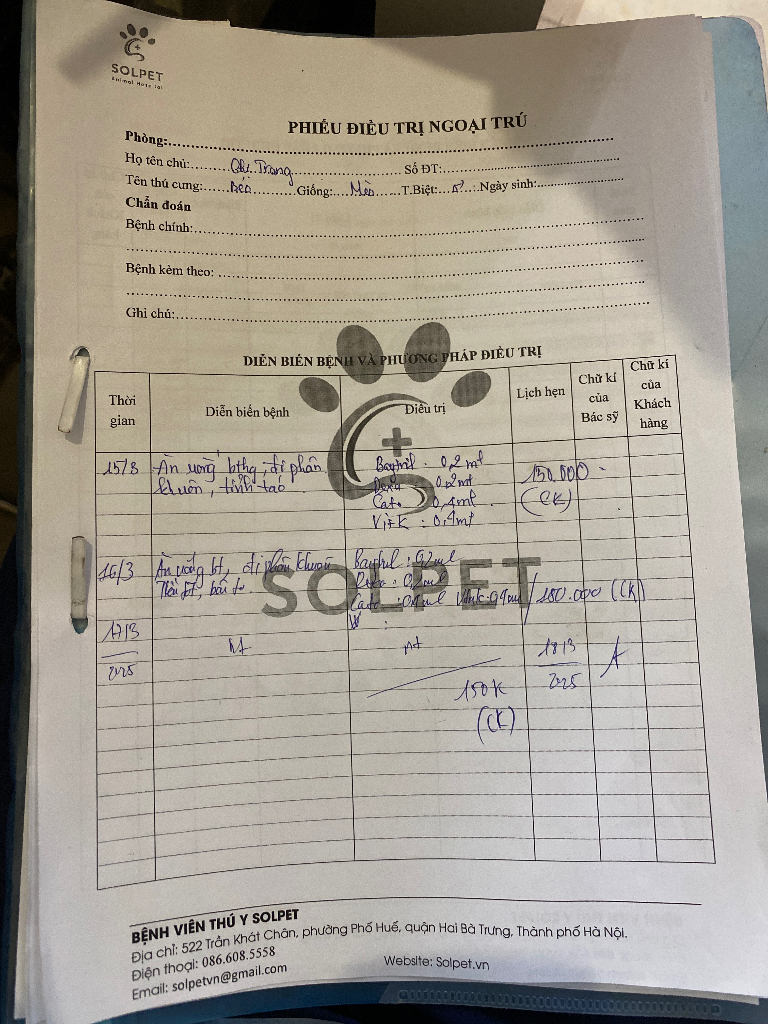 SOLPET
Animal Hospital
PHIẾU ĐIỀU TRỊ NGOẠI TRÚ
Phòng:
Họ tên chủ: Trang Số ĐT:
Tên thú cưng: Béo Giống: Mèo T.Biệt: Ngày sinh:
Chẩn đoán
Bệnh chính:
Bệnh kèm theo:
Ghi chú:
DIỄN BIẾN BỆNH VÀ PHƯƠNG PHÁP ĐIỀU TRỊ
Thời gian Diễn biến bệnh Điều trị Lịch hẹn Chữ kí của Bác sỹ Chữ kí của Khách hàng
15/3 Ăn uống bthg, đi phân Baytril : 0,2ml 150.000
khuôn, tỉnh táo Dexa 0,2ml (CK)
Cato 0,4ml
Vit K : 0,4ml
16/3 Ăn uống bt, đi phân khuôn Baytril : 0,2ml
Dexa : 0,2ml
Cato : 0,4ml VitK: 0,4ml / 150.000 (CK)
SOLPET
17/3 nt nt 18/3
2025 2025
150K
(CK)
BỆNH VIÊN THÚ Y SOLPET
Địa chỉ: 522 Trần Khát Chân, phường Phố Huế, quận Hai Bà Trưng, Thành phố Hà Nội.
Điện thoại: 086.608.5558
Email: solpetvn@gmail.com Website: Solpet.vn